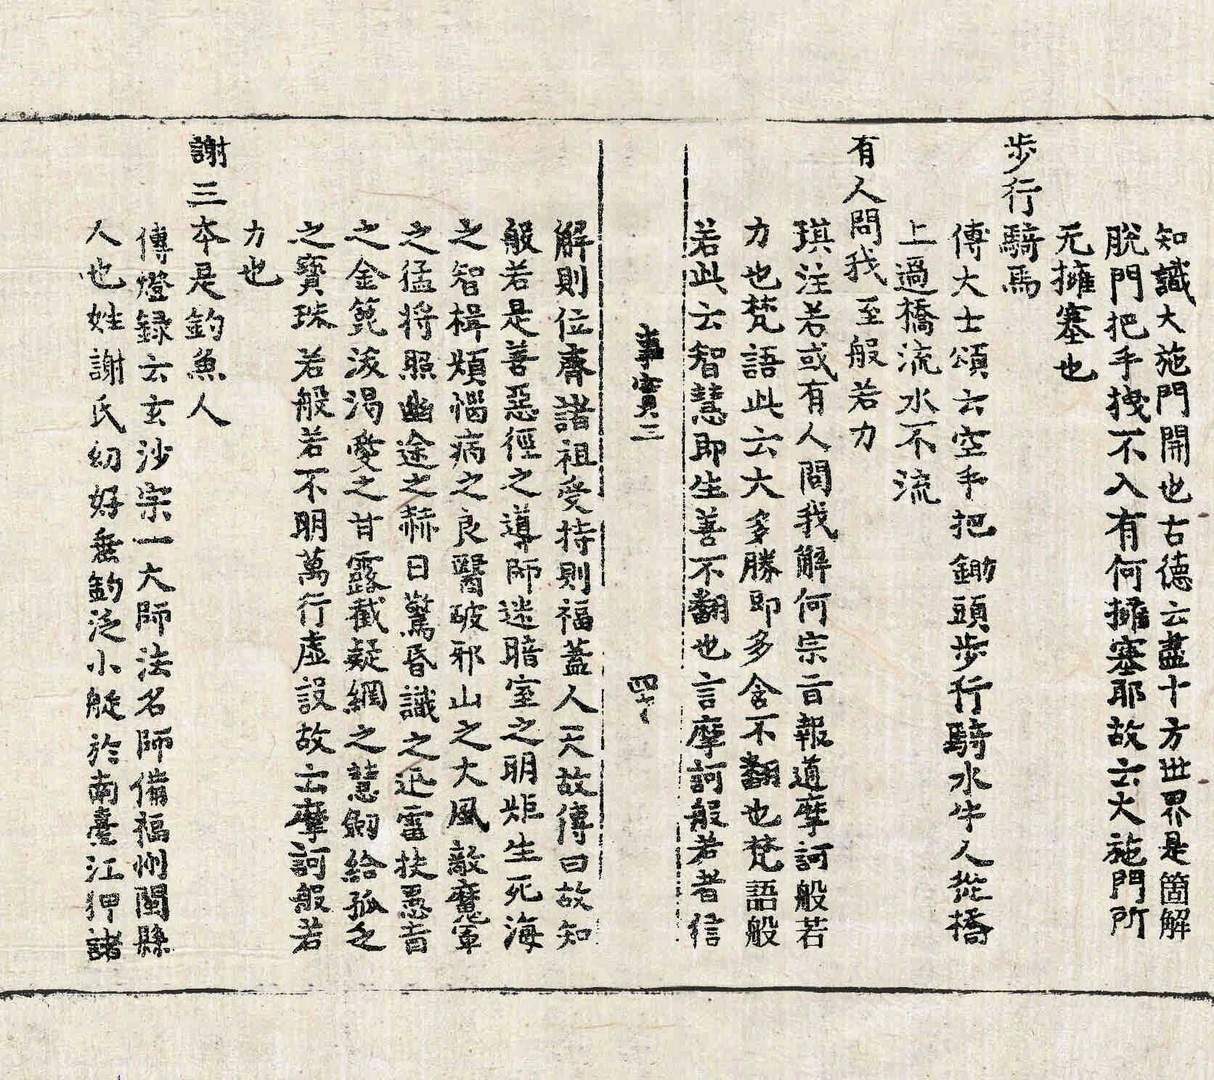 知識大施門開也古德云盡十方世界是箇解
脫門把手拽不入有何擁塞耶故云大施門所
无擁塞也
步行騎馬
傅大士頌云空手把鋤頭步行騎水牛人從橋
上過橋流水不流
有人問我至般若力
琪注若或有人問我解何宗旨報道摩訶般若
力也梵語此云大多勝即多含不翻也梵語般
若此云智慧即生善不翻也言摩訶般若者信
事實三 四七
解則位齊諸祖受持則福蓋人天故傳曰故知
般若是善惡徑之導師迷暗室之明炬生死海
之智楫煩惱病之良醫破邪山之大風敵魔軍
之猛將照幽途之赫日驚昏識之迅雷抉愚盲
之金錍沃渴愛之甘露截疑網之慧劒給孤乏
之寶珠若般若不明萬行虛設故云摩訶般若
力也
謝三本是釣魚人
傳燈録云玄沙宗一大師法名師備福州閩縣
人也姓謝氏幼好垂釣泛小艇於南臺江狎諸